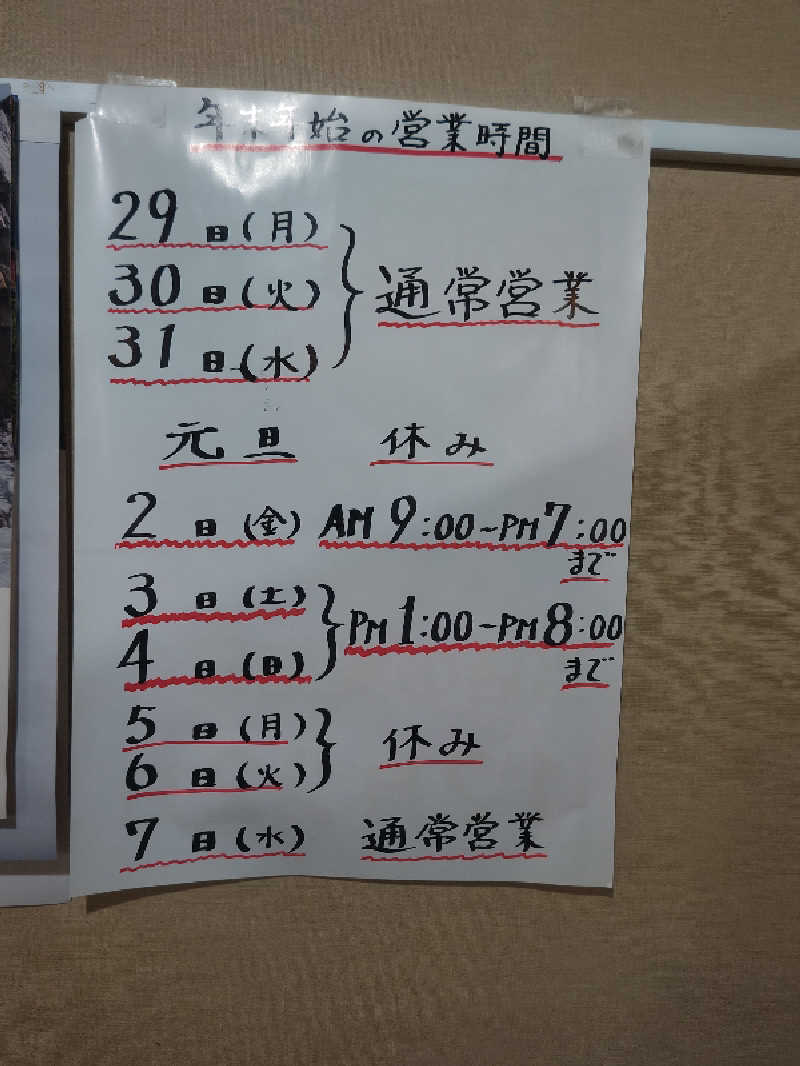 年末年始の営業時間
29日(月)
30日(火) 通常営業
31日(水)
元旦 休み
2日(金) AM9:00~PM7:00
まで
3日(土)
4日(日) PM1:00~PM8:00
まで
5日(月)
6日(火) 休み
7日(水) 通常営業